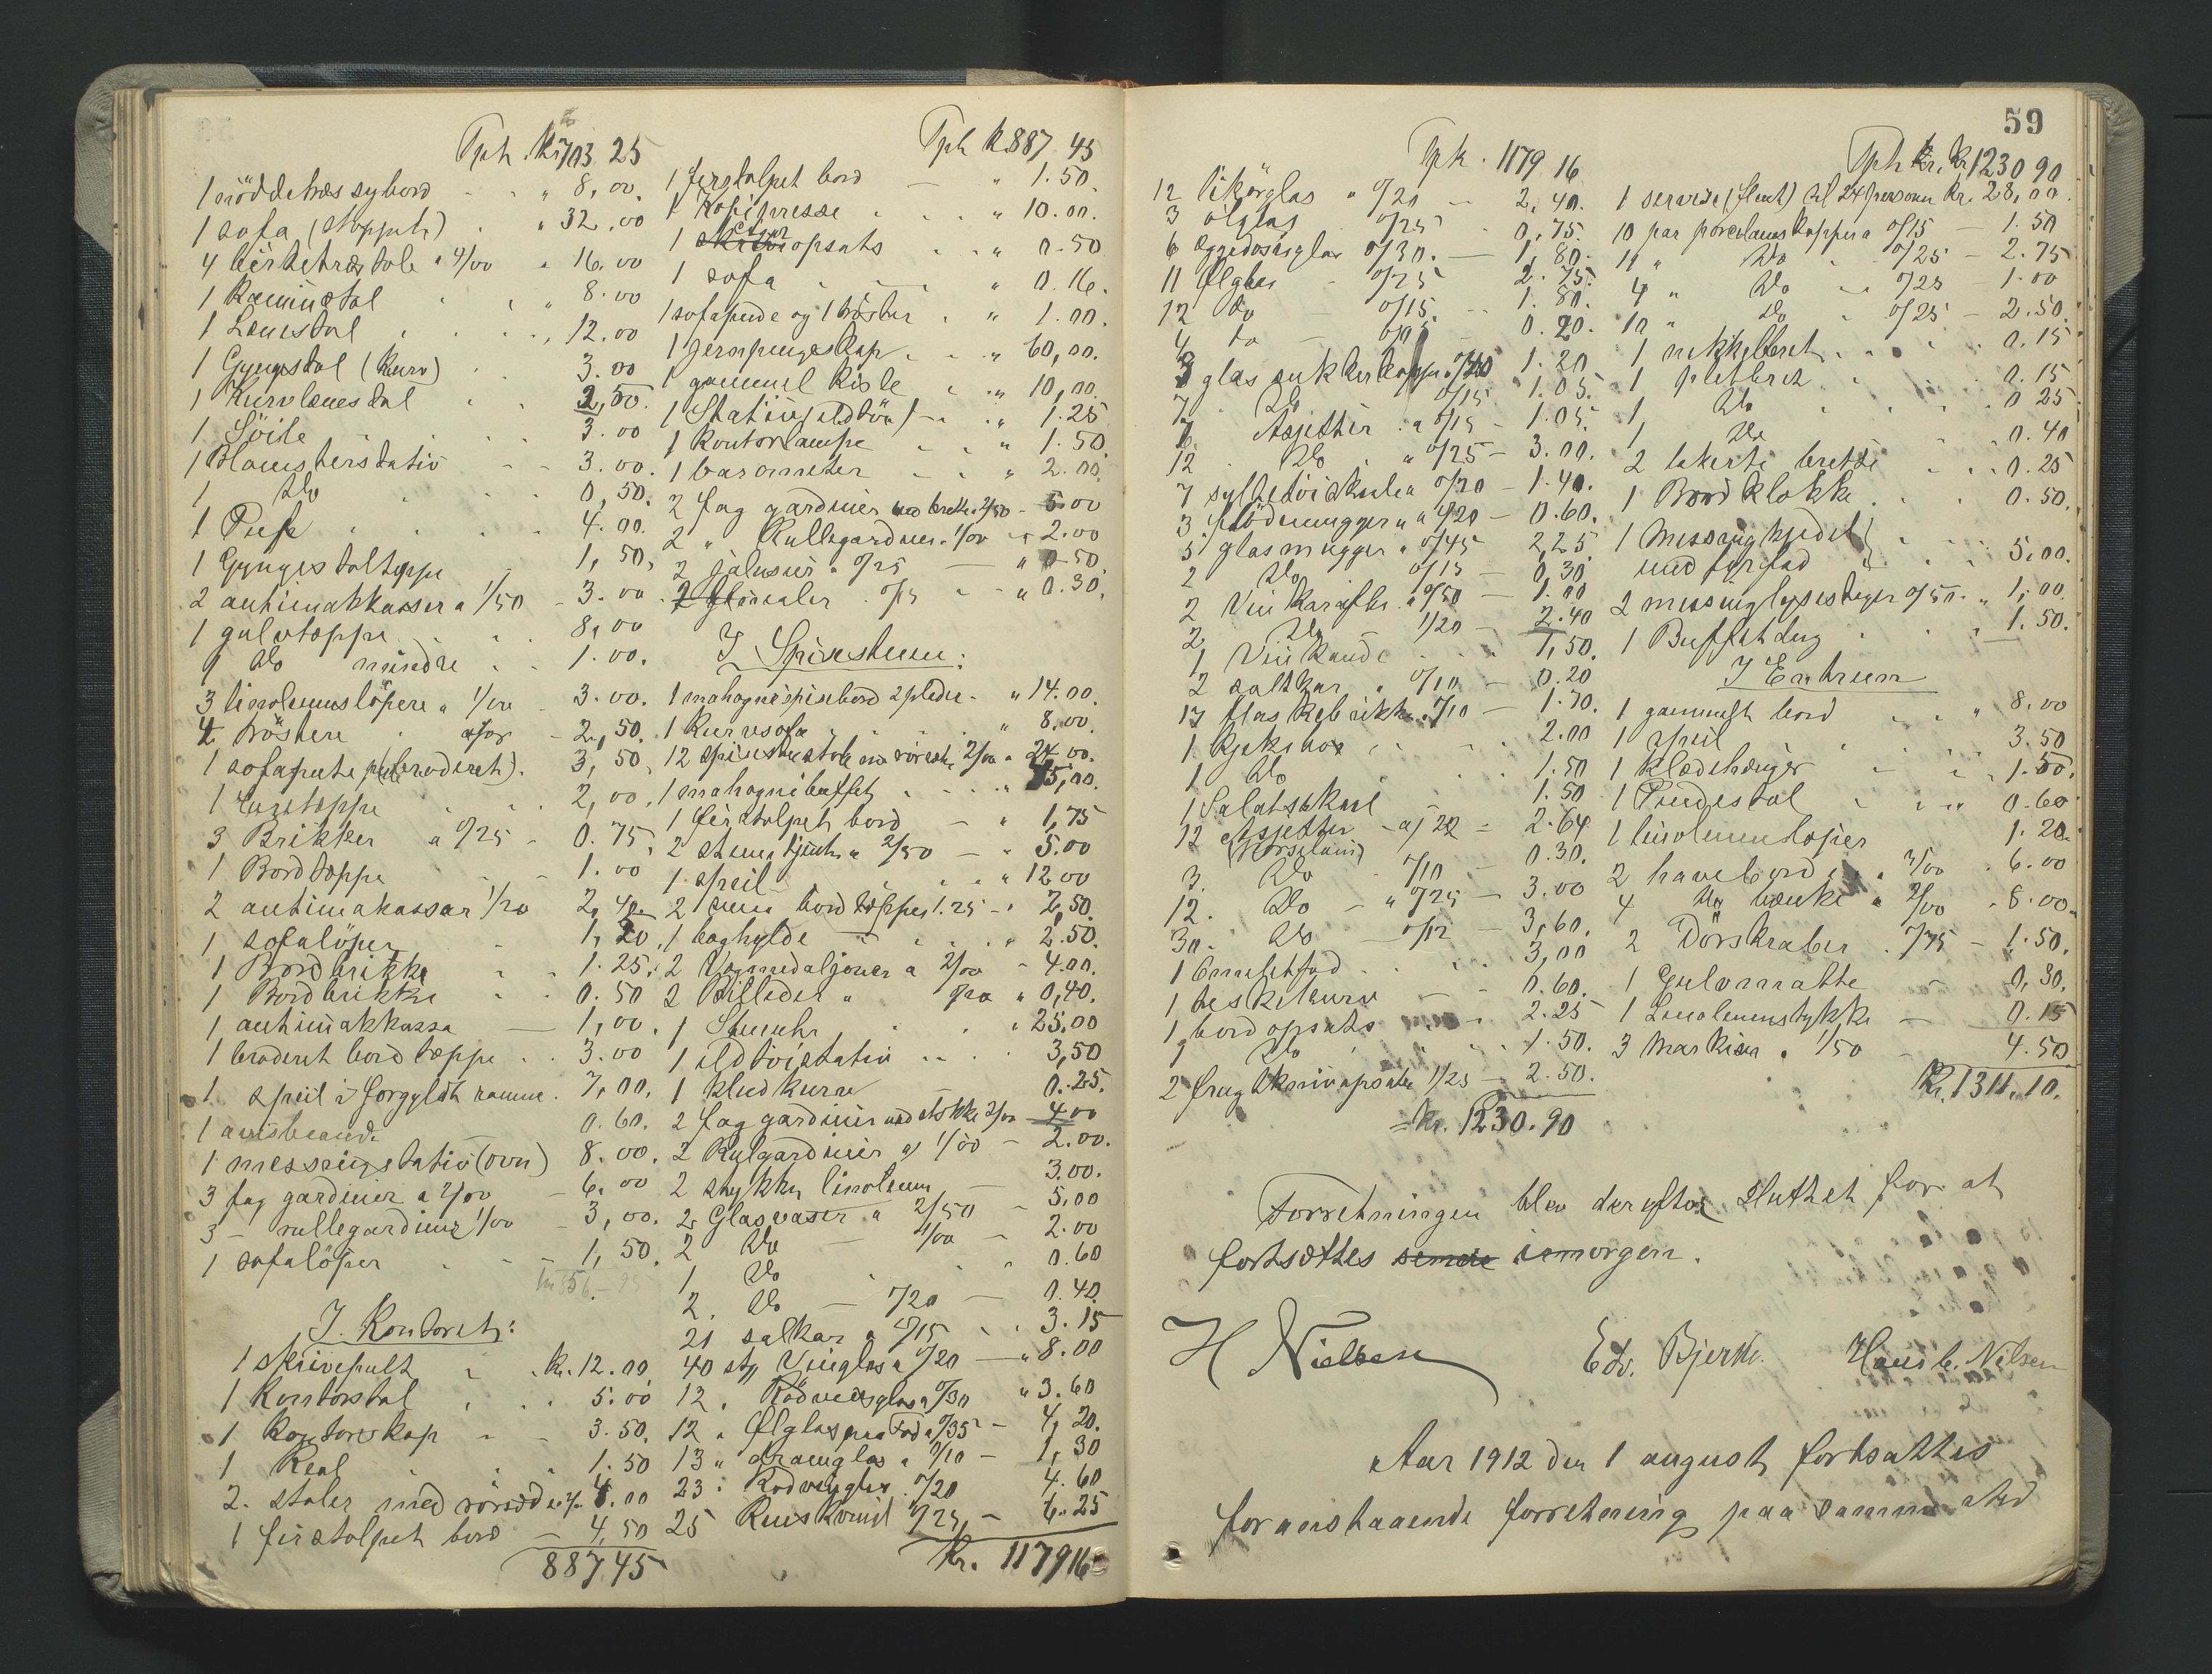 Tph. Kr. 703 25
1 nöddetræs sybord " 8,00
1 sofa (stoppet) " 32,00
4 birketræstole a 4/00 " 16.00
1 Kaminstol " 8.00
1 Lænestol " 12.00
1 Gyngstol (kurv) 3.00
1 Kurvlænestol 2,50.
1 Söile 3.00
1 Blomsterstativ 3.00.
1 Do 0,50.
1 Puf 4.00.
1 Gyngestolteppe 1,50,
2 antimakkasser a 1/50 - 3.00.
1 gulvtæppe 8,00
1 Do mindre 1.00.
3 linoleumslöpere a 1/00 3.00.
4 tröstere 2,50.
1 sofapute (broderet). 3,50
1 teppe 2,00,
3 Brikker a 0/25 - 0.75,
1 Bordtæppe 1.00
2 antimakassar 1/20 2,40
1 sofalöper 1,20
1 Bordbrikke 1.25.
1 Bordbrikke 0.50
1 antimakkassa 1,00.
1 broderet bordtæppe 3.00
1 speil i forgyldt ramme. 7,00,
1 avisbeande 0.60.
1 messingstativ (ovn) 8.00,
3 fag gardiner a 2/00 - 6.00
3 - rullegardiner 1/00 - 3,00.
1 sofalöper 1,50.
I Kontoret:
1 skrivepult Kr. 12.00
1 Kontorstol 5.00
1 Kontorskap 3.50.
1 Reol 1.50
2. stoler med rörsæde 4.00
1 firstolpet bord - 4,50
887,45
Tph Kr. 887 45
1 firstolpet bord — " 1.50.
1 Kopipresse " 10.00.
1 opsats " 0.50
1 sofa " 0.16.
1 sofapude og 1 tröster " 1.00.
1 jernpengeskap " 60,00.
1 gammel kiste " 10,00.
1 Stativ (ildtöi) " 1.25
1 Kontorlampe " 1.50
1 barometer " 2.00.
2 fag gardiner 2/50 - 5.00
2 " Rullegardiner 1/00 - 2.00
2 jalusier a 0/25 — " 0.50.
2 0/15 " 0.30.
I Spisestuen:
1 mahognispisebord 2 plader " 14.00.
1 Kurvesofa " 8.00.
12 spisestuestole 2/00 " 24.00.
1 mahognibuffet 75,00.
1 firstolpet bord — " 1,75
2 2/50 — " 5.00
1 speil " 12.00
2 bordtæpper 1.25 - " 2,50.
1 boghylde " 2.50.
2 Vegmedaljoner a 2/00 - 4.00.
2 Billeder " " 0,40.
1 Stueuhr " 25.00
1 ildtöistativ 3,50
1 kludkurv 0.25.
2 fag gardiner med stokke 2/00 4.00
2 Rulgardiner a 1/00 - 2.00.
2 stykker linoleum 3.00.
2 Glasvaser a 2/50 - 5.00
2 Do — 1/00 - 2.00
1 Do 0.60
2. Do — 0/20 — 0.40.
21 salkar a 0/15 3.15
40 stg Vinglas a 0/20 — " 8.00
12 " Rödvinsglas a 0/30 " 3.60
12 " Ølglas paa Fod a 0/35 - 4,20.
13 " dramglas a 0/10 - 1,30
23 : Rödvinglas 0/20 4.60
25 0/25 - 6.25
Kr. 1179 16
59
Tph. 1179 16
12 likörglas " 0/20 - 2,40.
3 ölglas 0/25 - 0,75.
6 eggedosisglas 0/30. — 1,80.
11 Ølglas - 0/25 2.75.
12 Do - 0/15. - 1.80.
4 Do - 0.20.
3 glas sukkerkopper a 0/40 1.20
7 Do 0/15 1.05.
7 Asjetter a 0/15 - 1.05.
12 Do " 0/25 - 3.00.
7 syltetöiskaale a 0/20 - 1.40.
3 flödemugger a 0/20 - 0.60.
5 glasmugger a 0/45 2,25
2 Do 0/15 - 0,30
2 Vinkarafler a 0/50 - 1.00
2 Do 1/20 - 2.40
1 Vinkande 1,50.
2 saltkar " 0/10 - 0.20
17 flaskebrikker 0/10 - 1.70.
1 Kjeksbox 2.00
1 Do 1.50
1 Salatskaal 1.50
12 Asjetter - a 0/22 = 2.64
(Porselain)
3. Do 0/10 - 0.30.
12. Do - " 0/25 - 3.00
30. Do - 0/12 - 3,60.
1 3,00
1 0.60.
1 bordopsats 2.25
1 Do 1.50.
2 frugtknivopsatser 1/25 - 2.50.
= Kr. 1230.90
Tph Kr. Kr. 1230 90
1 servise (stent) til 24 personer Kr. 28,00
10 par porcelænskopper a 0/15 — 1.50
11 " Do 0/25 - 2.75
4 " Do 0/25 - 1.00
10 " Do 0/25 - 2.50.
1 nikkelbret 0.15
1 pletbret 0.15
1 Do 0 25
1 Do 0.40
2 lakerte bretter 0.25
1 Bordklokke 0.50.
1 Messingkjedel
med fyrfad 5.00.
2 messinglysestager 0/50. " 1,00.
1 Buffetdug 1.50.
I Entreen
1 gammelt bord " 8.00
1 speil 3.50
1 Klædehænger 1.50.
1 Pindestol " 0.60
1 linoleumlöper 1.20
2 havebord a 3/00 6.00
4 Do bænke a 2/00 - 8.00
2 Dörskraber 0/75 - 1.50.
1 Gulvmatte — 0,30.
1 Linoleumstykke — 0.15
3 Markiser a 1/50 - 4.50
Kr. 1311.10.
Forretningen blev derefter sluttet for at
fortsættes imorgen.
H Nielsen Edv. Bjerke. Hans C. Nilsen
Aar 1912 den 1 august fortsattes
foranstaaende forretning paa samme sted